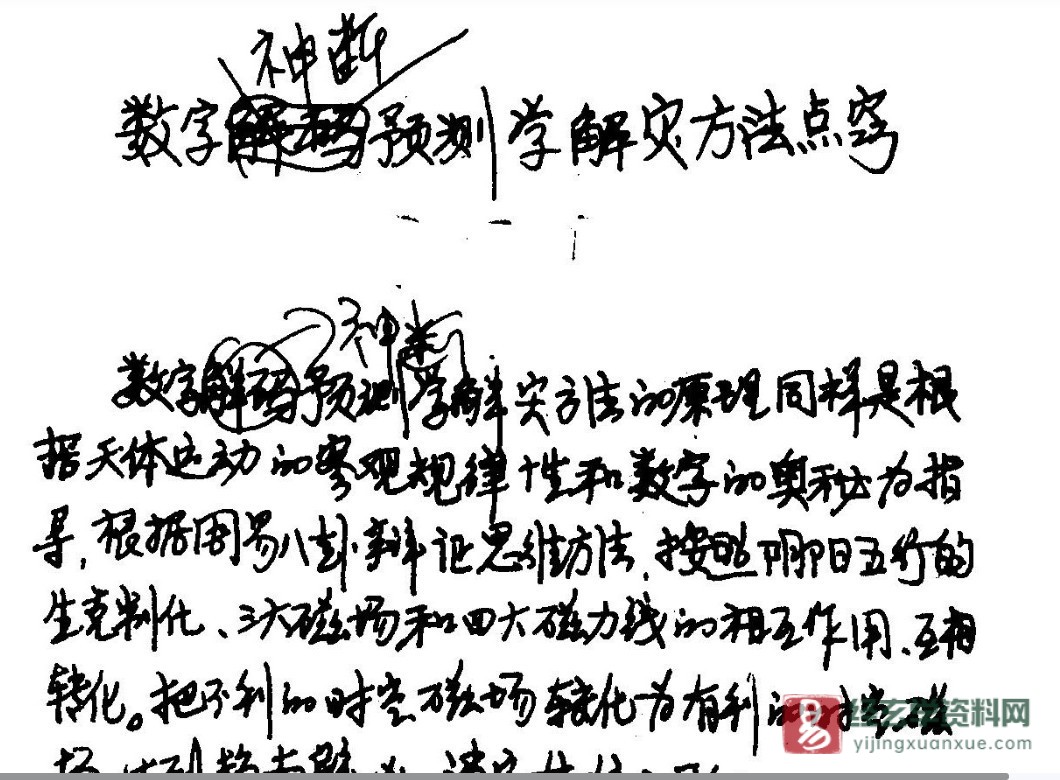 神断
数字解码预测学解灾方法点窍
神断
数字解码预测学解灾方法的原理同样是根
据天体运动的客观规律性和数字的奥秘为指
导,根据周易八卦辩证思维方法,按照阴阳五行的
生克制化、三大磁场和四大磁力线的相互作用、互相
转化。把不利的时空磁场转化为有利的时空磁
易 易玄学资料网
yijingxuanxue.com